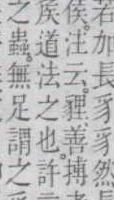 若加長豸豸然
侯。注云。貍善搏
矦道法之也。許
之蟲。無足謂之